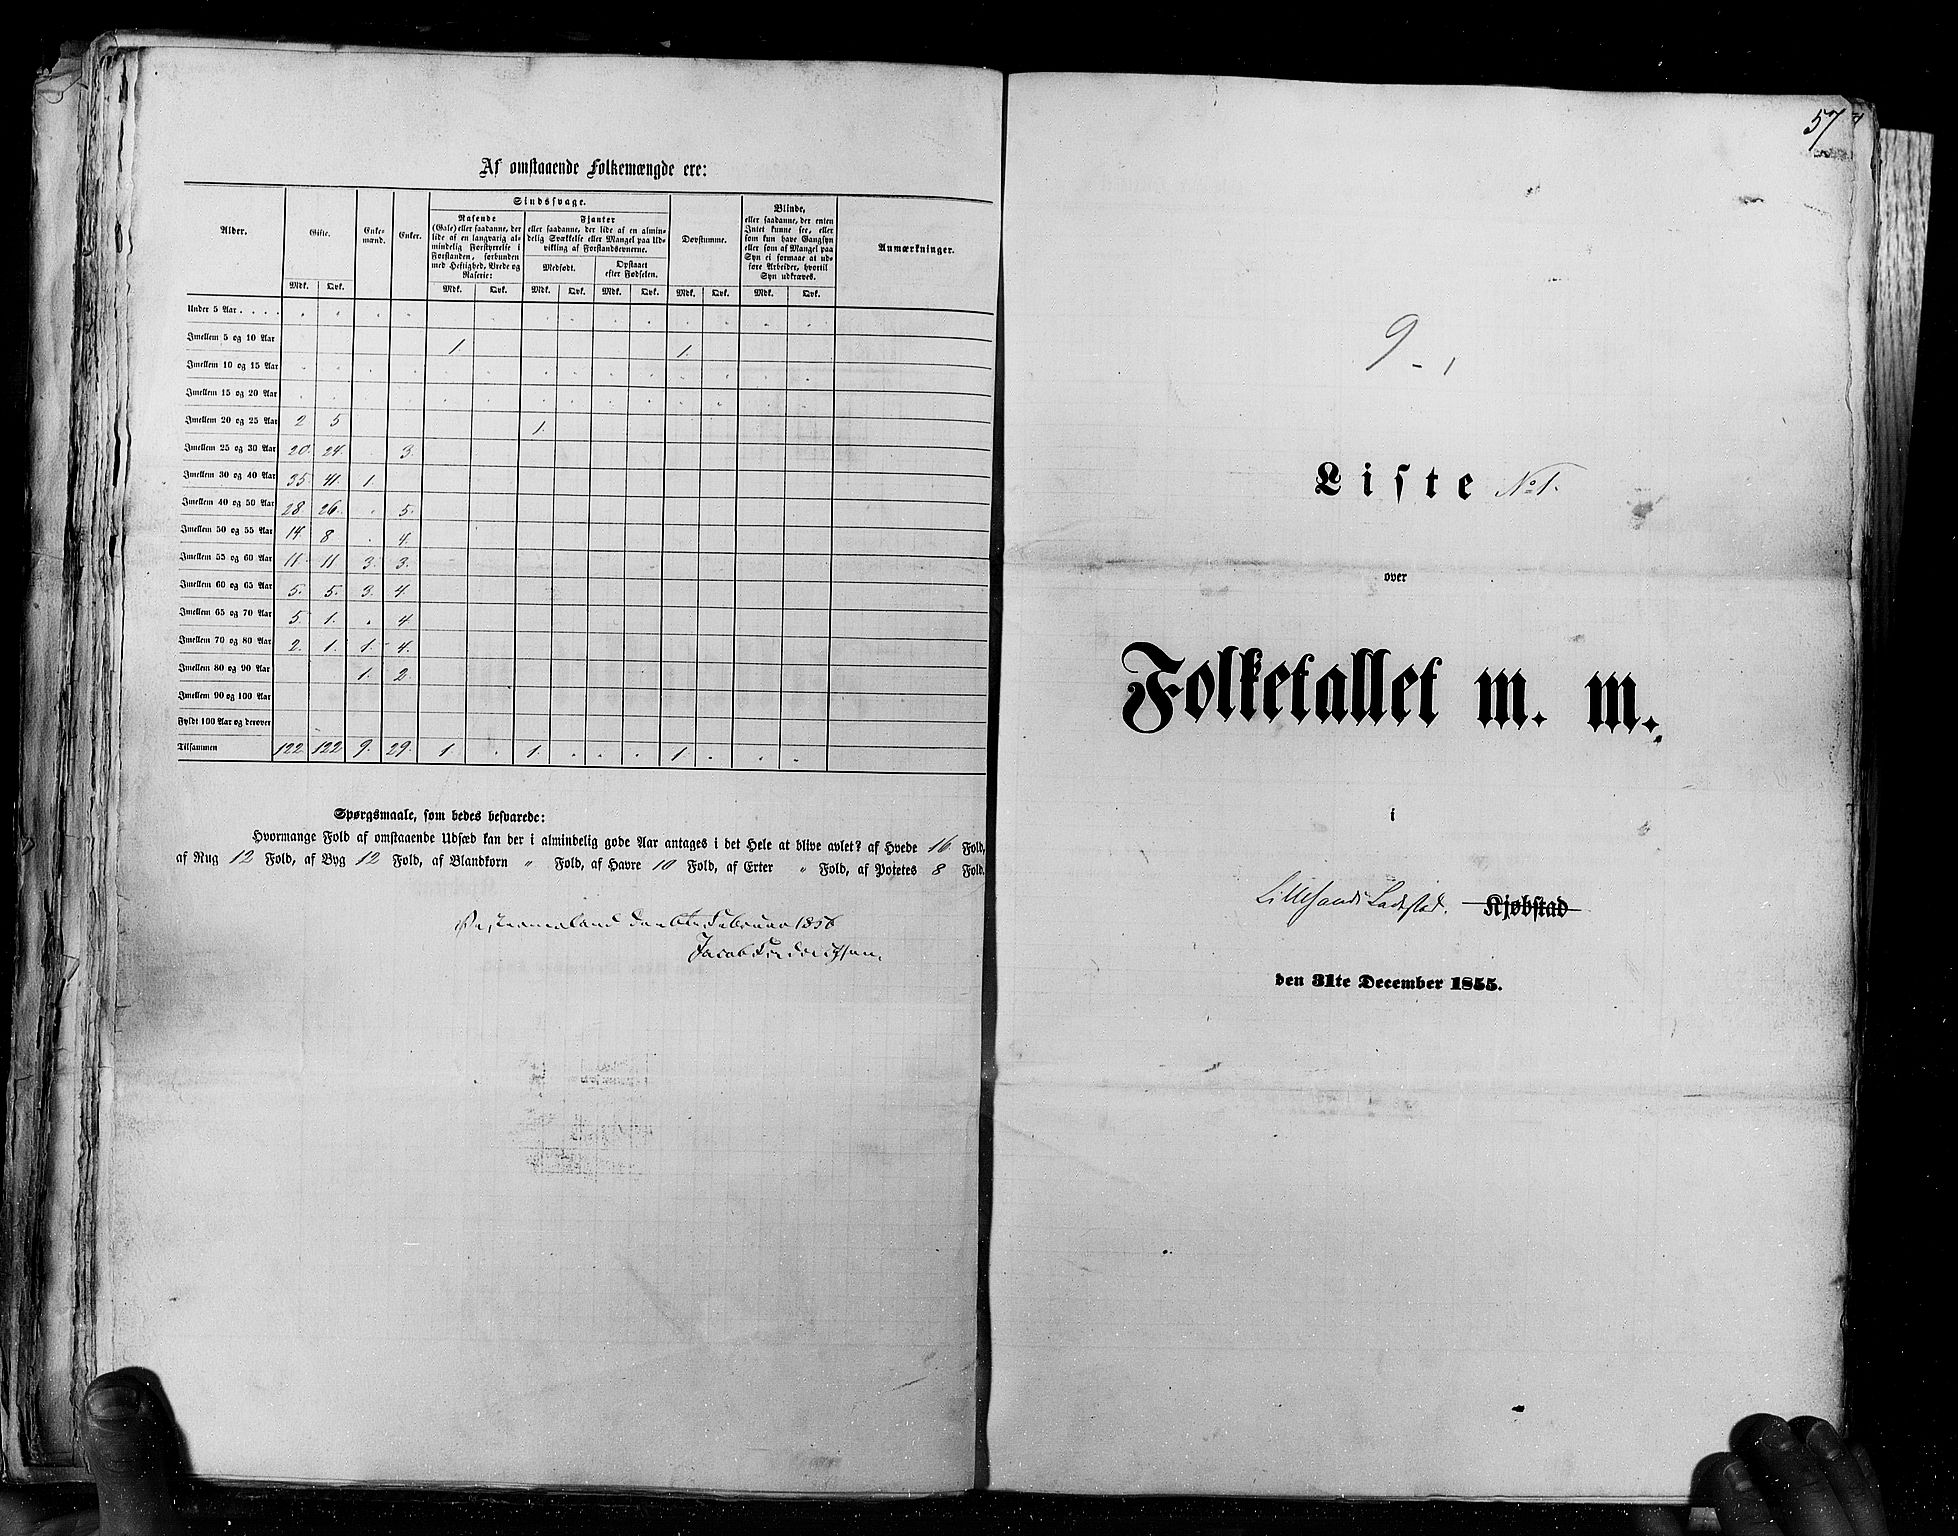 Af omstaaende Folkemængde ere:
Alder. Gifte. Enkemænd. Enker. Sindssvage. Døvstumme. Blinde, Anmærkninger.
Rasende (Gale) eller saadanne, der lide af en langvarig almindelig Forstyrrelse i Forstanden, forbunden med Heftighed, Vrede og Raserie:
Fjanter eller saadanne, der lide af en almindelig Svækkelse eller Mangel paa Udvikling af Forstandsevnerne.
eller saadanne, der enten Intet kunne see, eller som kun have Gangsyn eller som af Mangel paa Syn ei formaae at udføre Arbeider, hvortil Syn udkræves.
Medfødt. Opstaaet efter Fødselen.
Mdk. Qvk. Mdk. Qvk. Mdk. Qvk. Mdk. Qvk. Mdk. Qvk. Mdk. Qvk.
Under 5 Aar . . . .
Imellem 5 og 10 Aar 1 1.
Imellem 10 og 15 Aar
Imellem 15 og 20 Aar
Imellem 20 og 25 Aar 2 5 1.
Imellem 25 og 30 Aar 20. 24. 3.
Imellem 30 og 40 Aar 35. 41. 1.
Imellem 40 og 50 Aar 28. 26. 5.
Imellem 50 og 55 Aar 14. 8 4.
Imellem 55 og 60 Aar 11. 11 3. 3.
Imellem 60 og 65 Aar 5. 5. 3. 4.
Imellem 65 og 70 Aar 5. 1. 4
Imellem 70 og 80 Aar 2. 1. 1. 4.
Imellem 80 og 90 Aar 1. 2
Imellem 90 og 100 Aar
Fyldt 100 Aar og derover
Tilsammen 122 122 9. 29. 1. 1. 1.
Spørgsmaale, som bedes besvarede:
Hvormange Fold af omstaaende Udsæd kan der i almindelig gode Aar antages i det Hele at blive avlet? af Hvede 16 Fold,
af Rug 12 Fold, af Byg 12 Fold, af Blandkorn " Fold, af Havre 10 Fold, af Erter " Fold, af Potetes 8 Fold.
den 6te Februar 1856
Jacob
57
9 - 1
Liste No 1.
over
Folketallet m. m.
i
Lillesands Ladested. Kjøbstad
den 31te December 1855.